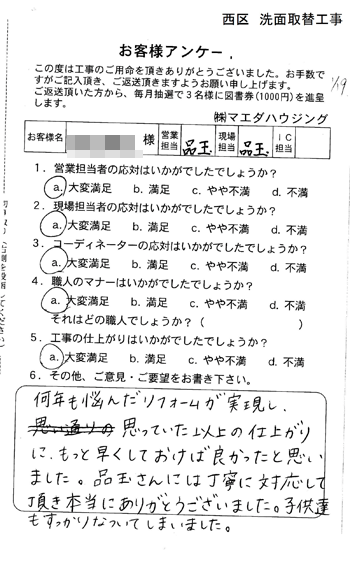 西区 洗面取替工事
お客様アンケー
1/19
この度は工事のご用命を頂きありがとうございました。お手数で
すがご記入頂き、ご返送頂きますようお願い申し上げます。
ご返送頂いた方から、毎月抽選で3名様に図書券(1000円)を進呈
します。
㈱マエダハウジング
お客様名 様 営業担当 品玉 現場担当 品玉 IC担当
1．営業担当者の応対はいかがでしたでしょうか？
a. 大変満足 b. 満足 c. やや不満 d. 不満
2．現場担当者の応対はいかがでしたでしょうか？
a. 大変満足 b. 満足 c. やや不満 d. 不満
3．コーディネーターの応対はいかがでしたでしょうか？
a. 大変満足 b. 満足 c. やや不満 d. 不満
4．職人のマナーはいかがでしたでしょうか？
a. 大変満足 b. 満足 c. やや不満 d. 不満
それはどの職人でしょうか？（ ）
5．工事の仕上がりはいかがでしたでしょうか？
a. 大変満足 b. 満足 c. やや不満 d. 不満
6．その他、ご意見・ご要望をお書き下さい。
何年も悩んだリフォームが実現し、
思い通りの 思っていた以上の仕上がり
に、もっと早くしておけば良かったと思い
ました。品玉さんには丁寧に対応して
頂き本当にありがとうございました。子供達
もすっかりなついてしまいました。